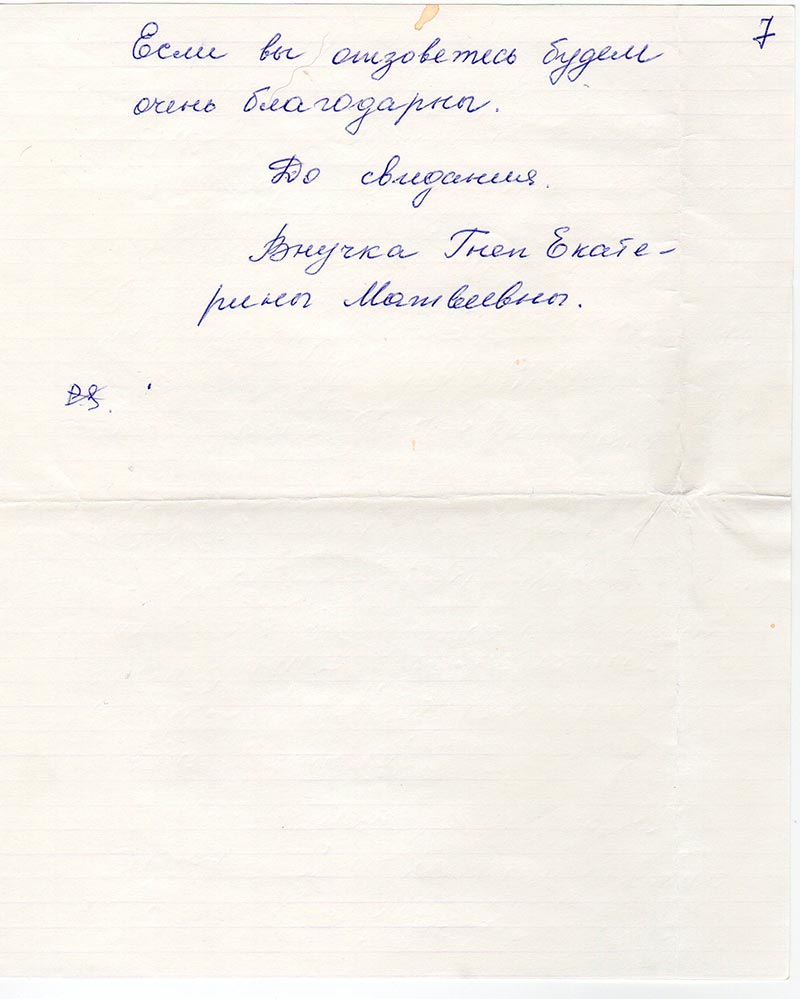 7
Если вы отзоветесь будем
очень благодарны.
До свидания.
Внучка Гнеп Екате-
рины Матвеевны.